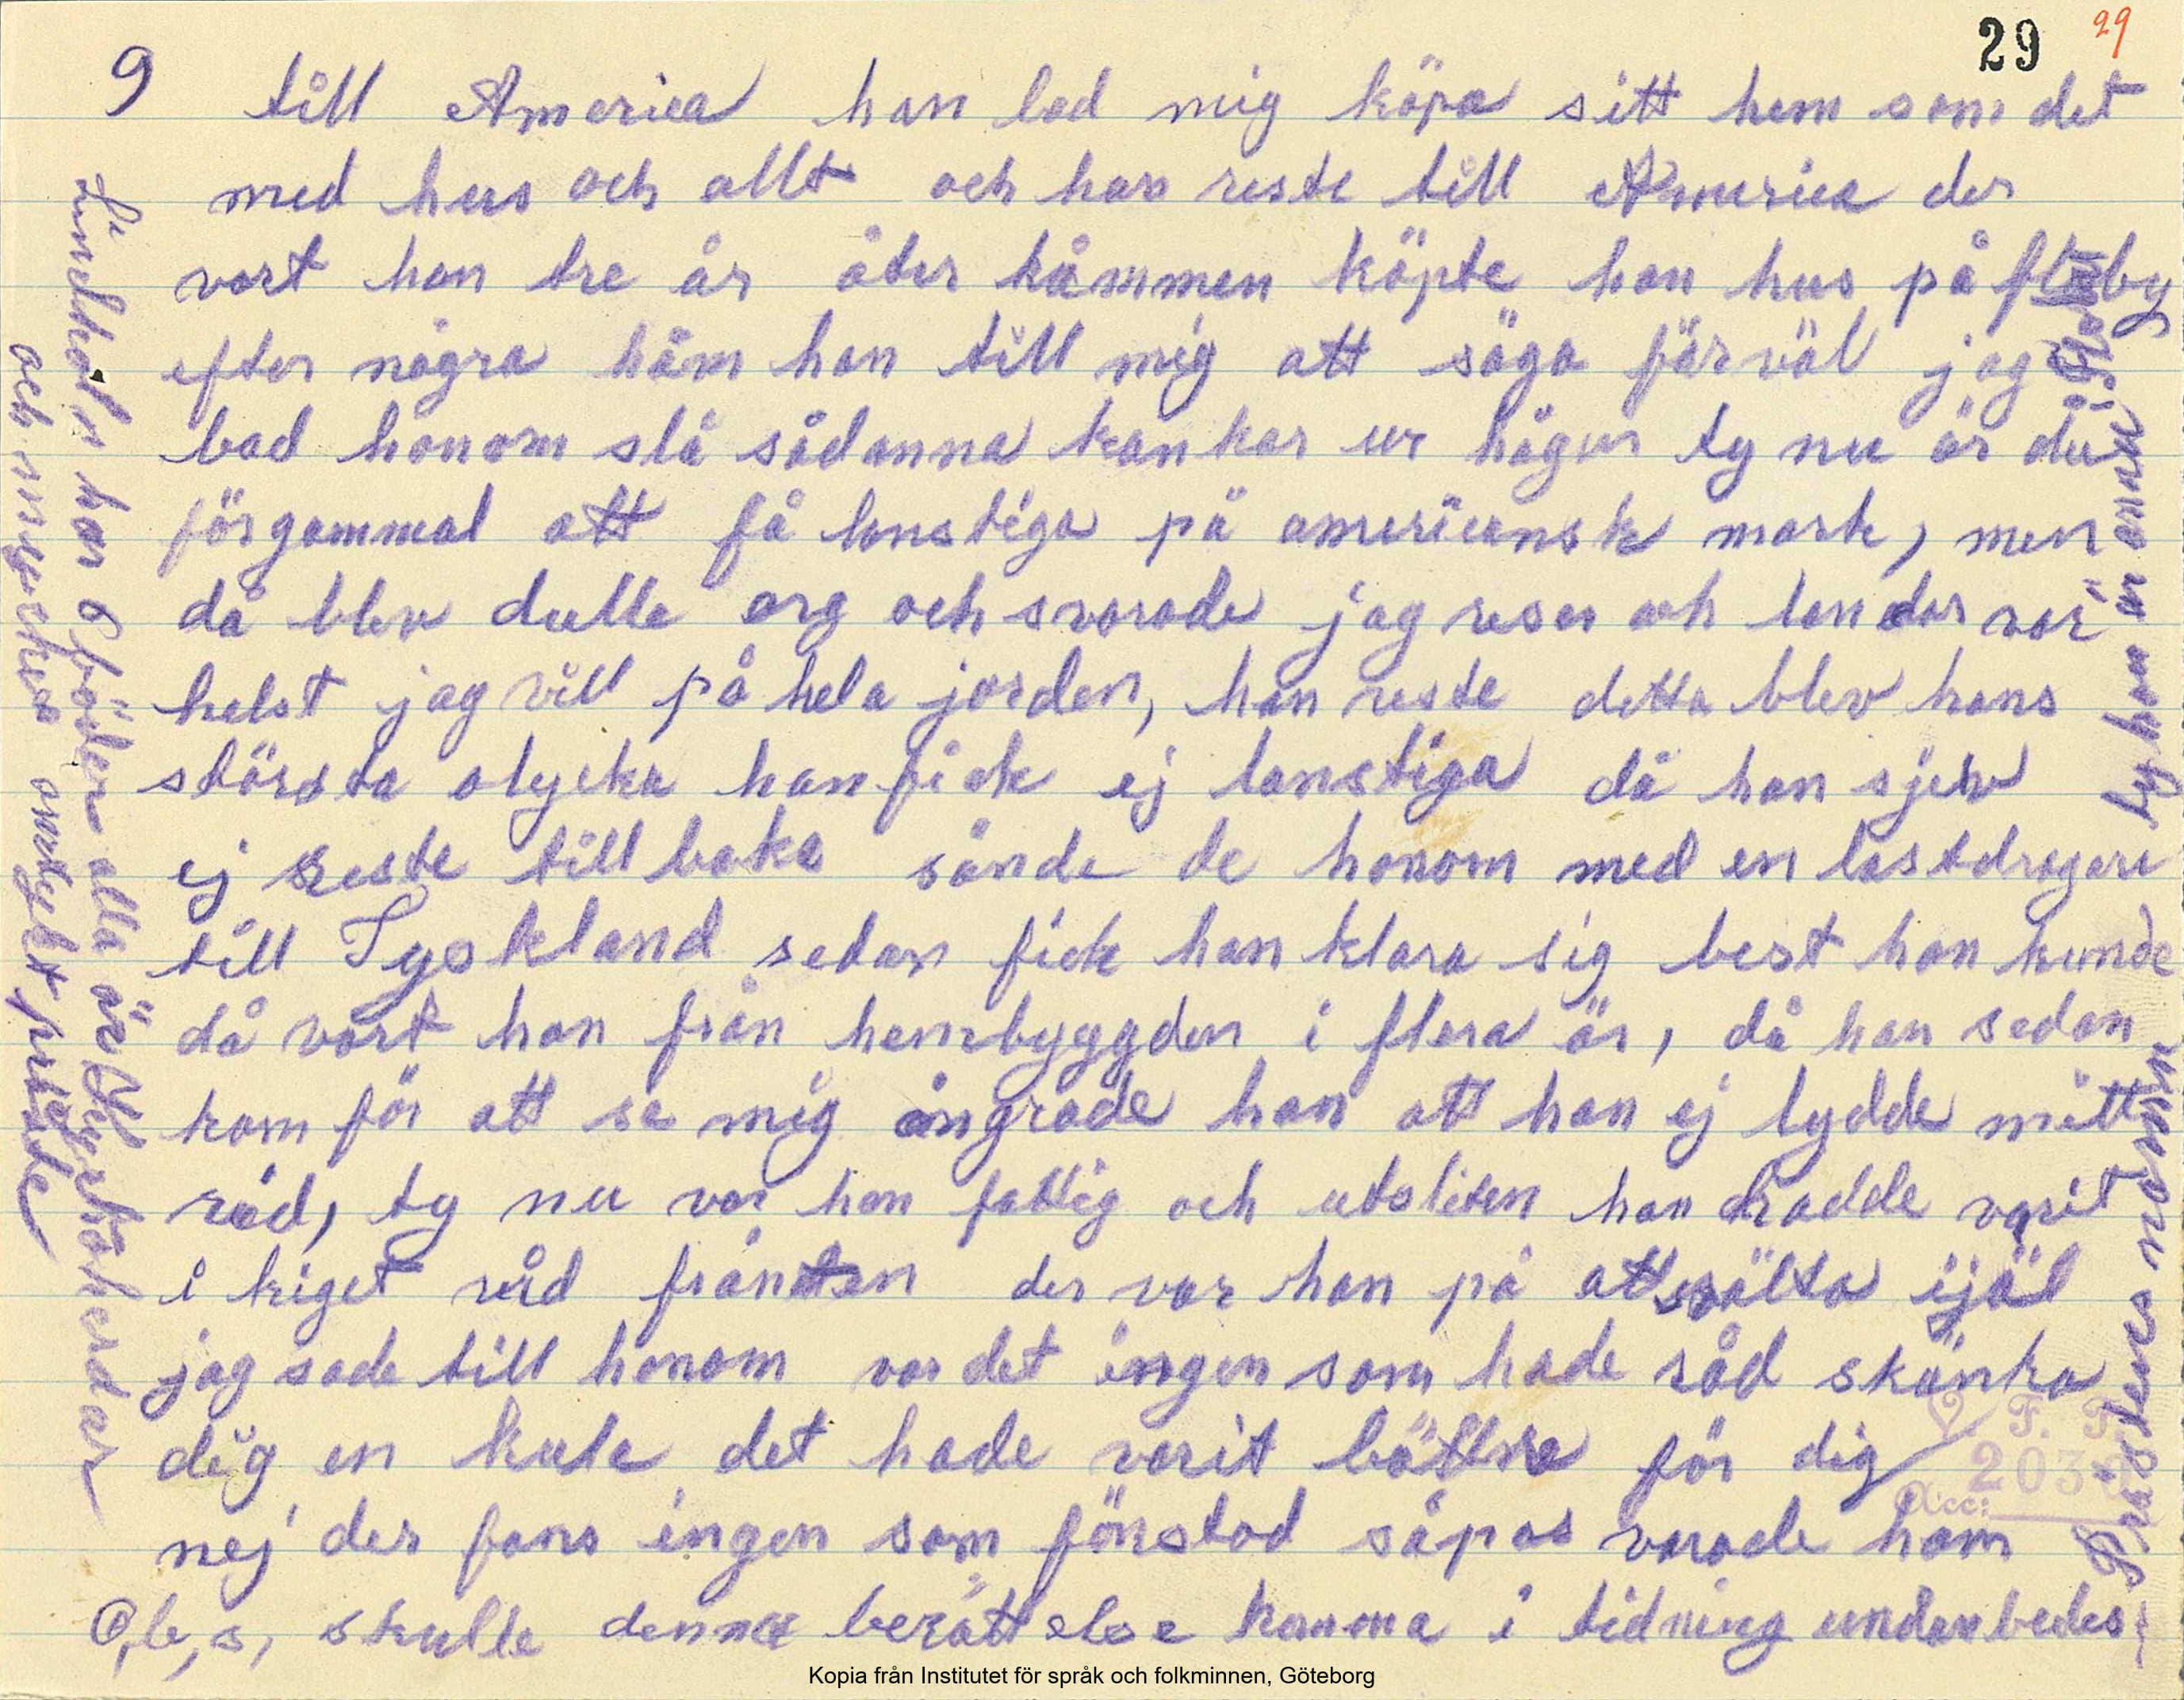 29 29
9 till America han lod mig köpa sitt hem som det
med hus och allt och han reste till America der
vart han tre år åter kåmmen köpte han hus på
efter några kåm han till mig att säga färväl jag
bad honom slå sådanna kankar ur hågen ty nu är du
förgammal att få lanstiga på americansk mark, men
då blev dulle arg och svarade jag reser och landar var
helst jag vill på hela jorden, han reste detta blev hans
största olycka han fick ej lanstiga då han sjelv
ej reste tillbaka sände de honom med en lastdragare
till Tyskland sedan fick han klara sig best han kunde
då vart han från hembyggden i flera år, då han sedan
kom för att se mig ångrade han att han ej lydde mitt
råd, ty nu var han fattig och utsliten han hadde varit
i kriget vid fränten der var han på att svälta ijäl
jag sade till honom var det ingen som hade råd skänka
dig en kula det hade varit bättre för dig
nej der fans ingen som förstod såpas varade ham
O,b,s, skulle denna berättelse komma i tidning undanbedes
Prästens namn ty han är ännu i
har 6 böder alla är
och mycket omtyckt präste
V. F. F.
Acc: 2030
Kopia från Institutet för språk och folkminnen, Göteborg